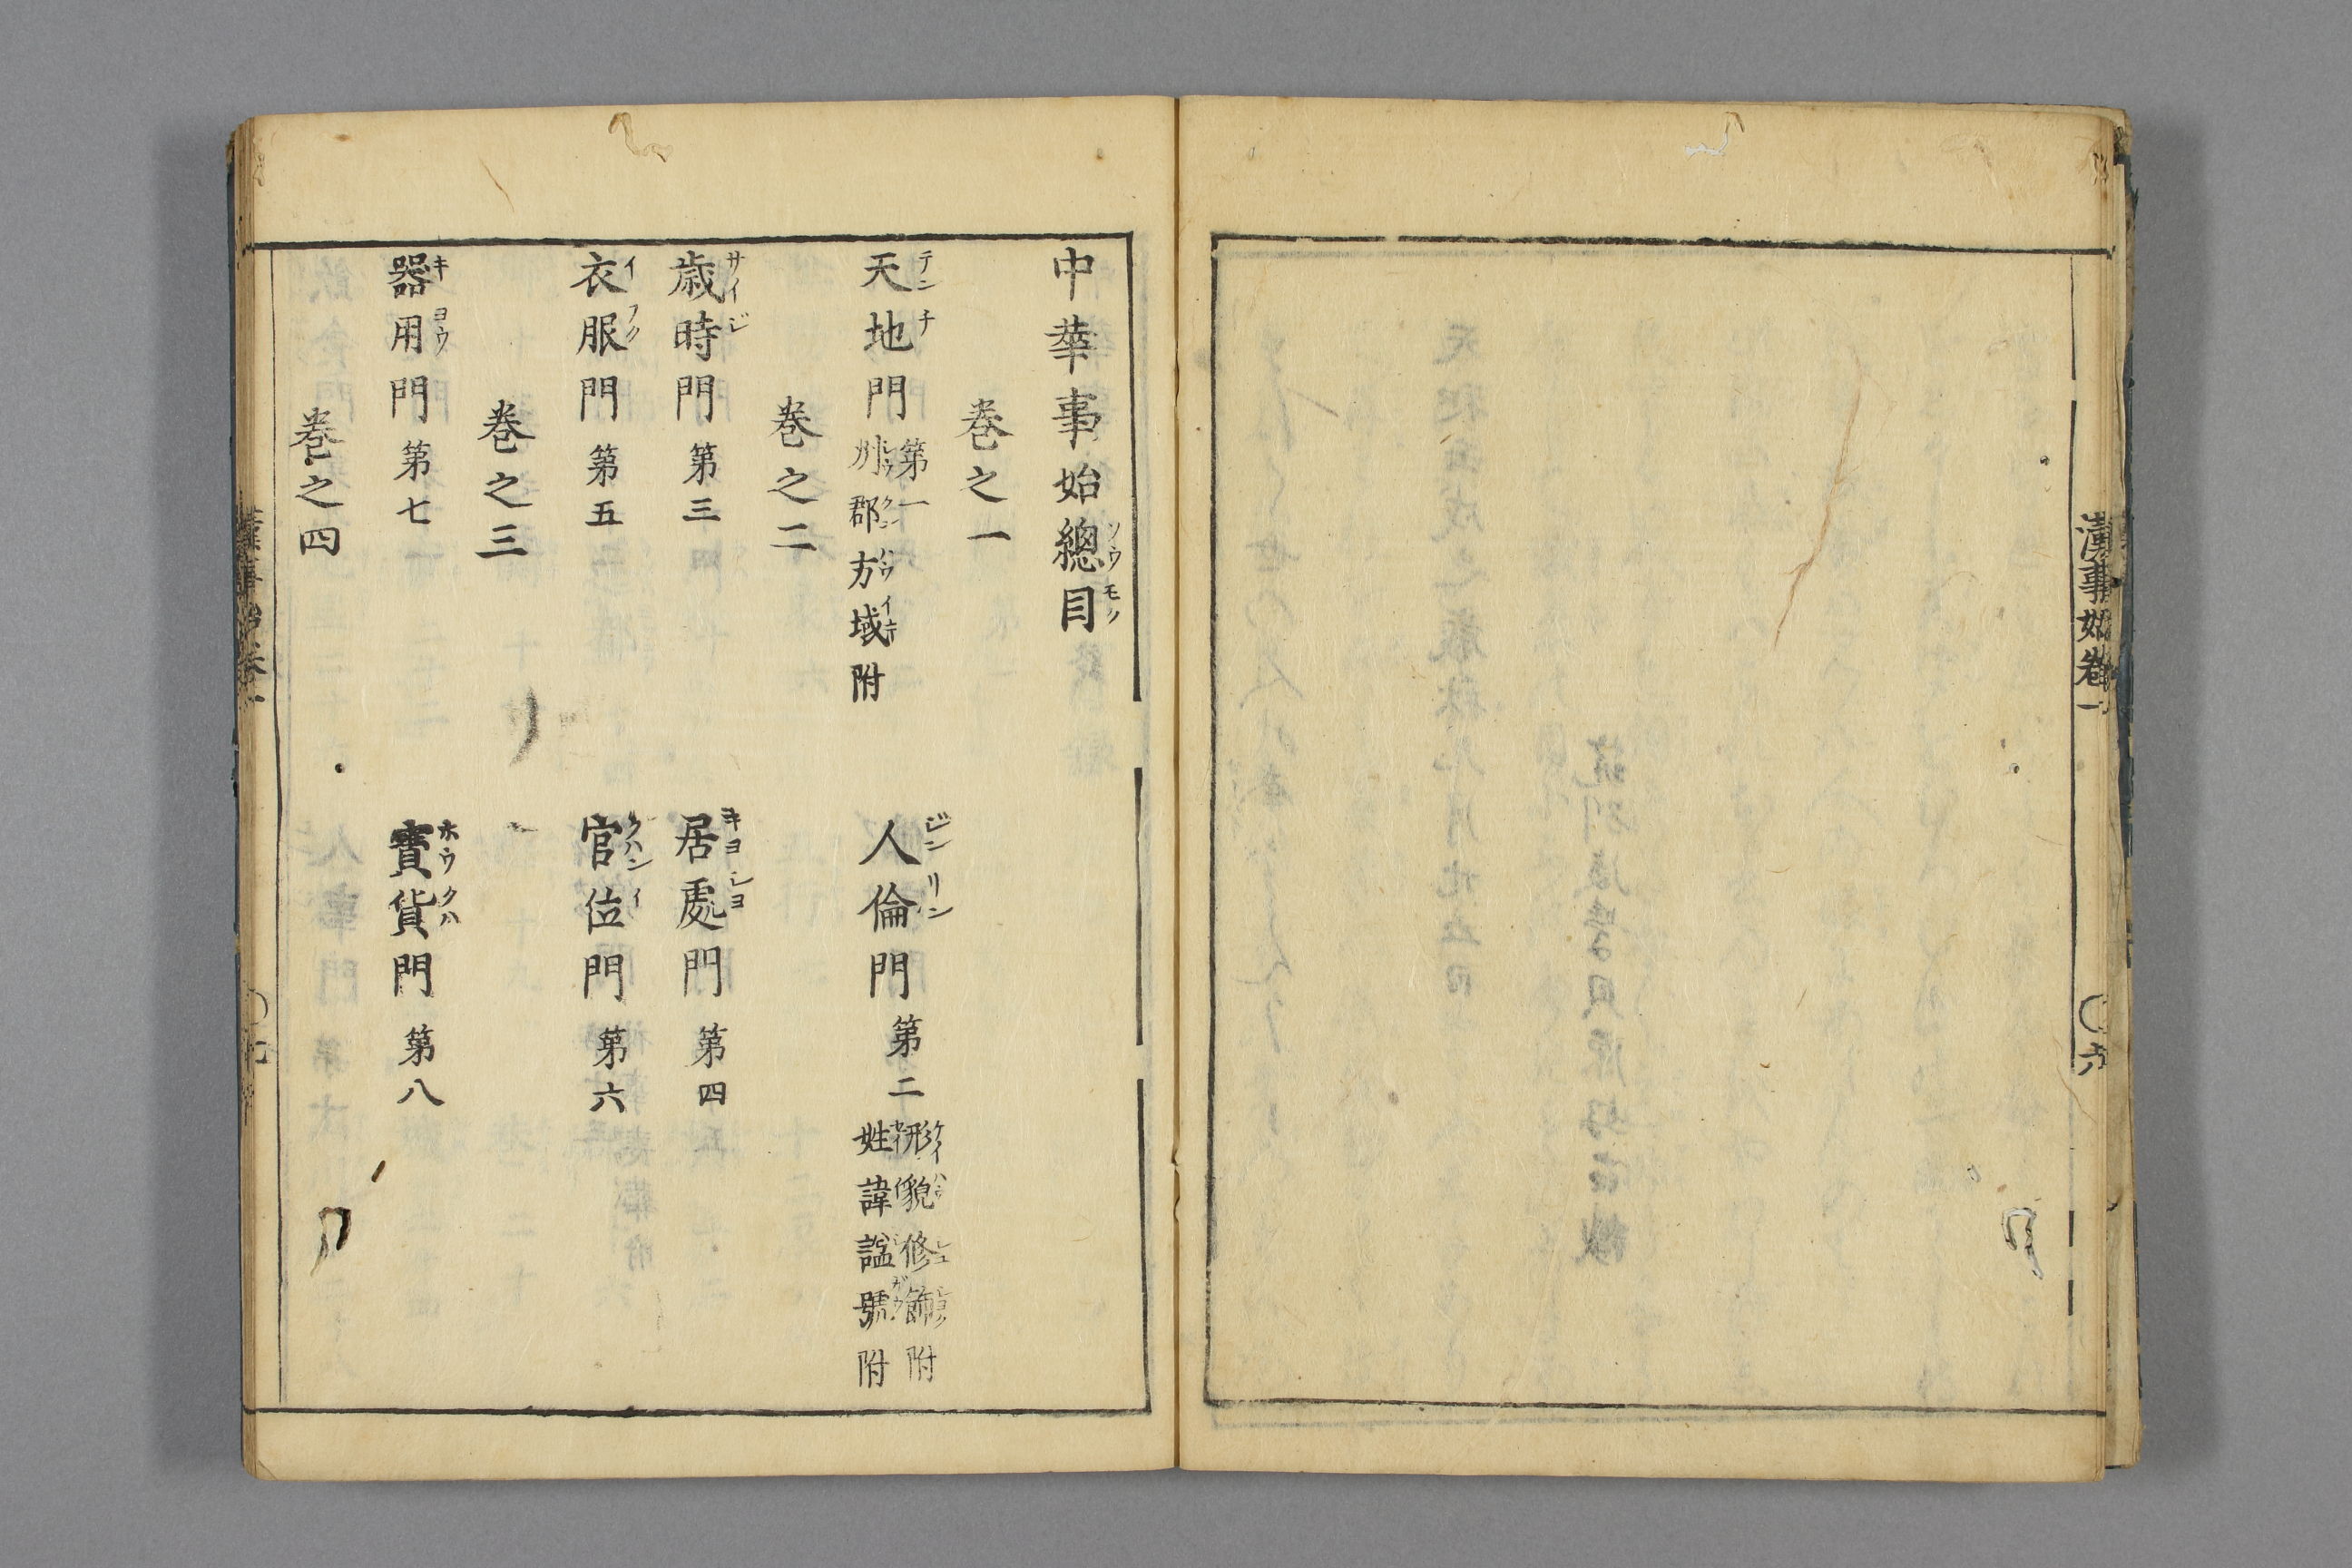 漢事始卷一
〇六
中華事始總目
卷之一
天地門第一 州郡方域附
人倫門第二 形貌修飾附 姓諱諡號附
卷之二
歳時門第三
居處門第四
衣服門第五
官位門第六
卷之三
器用門第七
寶貨門第八
卷之四
漢事始卷一
〇七